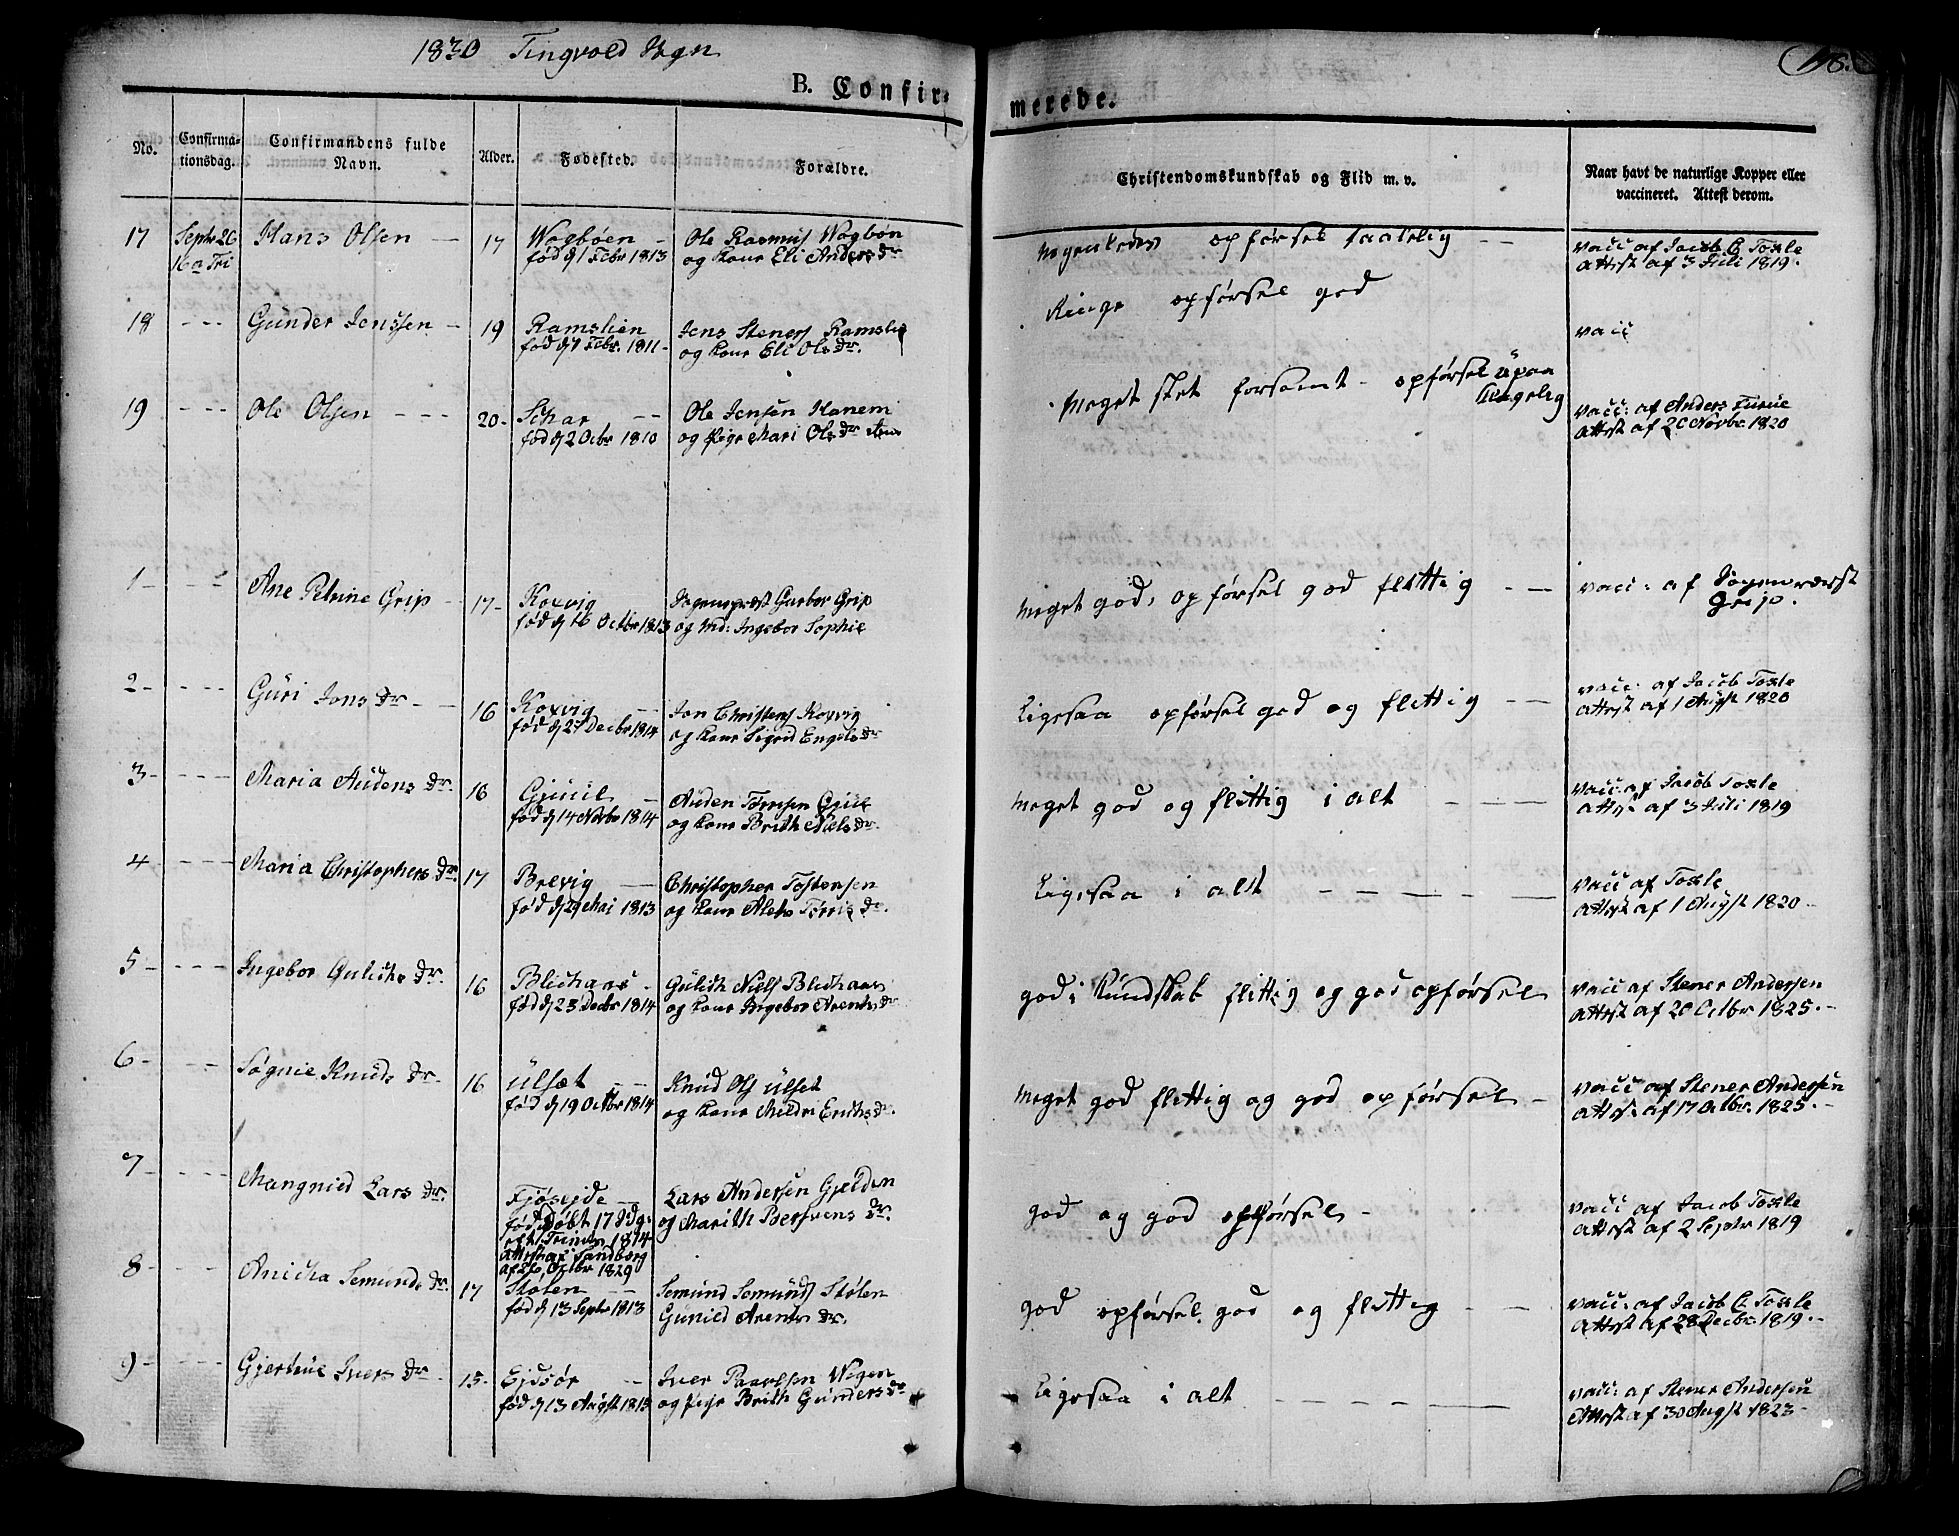 1830 Tingvold Sogn
B. Confir-
merede.
No.
Confirma-
tionsdag.
Confirmandens fulde
Navn.
Alder.
Fødested.
Forældre.
Christendomskundskab og Flid m. v.
Naar havt de naturlige Kopper eller
vaccineret. Attest derom.
17 Septr 26 Hans Olsen — 17 Wogbøen — Ole Rasmus Wogbøn nogenledes opførsel taalelig — — vacc af Jacob C Toxle
16 a Tri fød d 1 Febr 1813 og kone Eli Anders Dr attest af 3 Juli 1819.
18 - - - Gunder Jenssen — 19 Ramslien Jens Steners Ramslie Ringe opførsel god vacc
fød d 7 Febr. 1811 - og kone Eli Ols Dr.
19 - - - Ole Olsen - - - 20 - Schar — — Ole Jensen Hanem Meget slet forsømt - opførsel upaa vacc: af Anders Furue
fød d 2 Octbr 1810 og Pige Mari Ols Dr klagelig attest af 20 Novbr. 1820
1 - - - Ane Petrine Grip - 17 - Koxvig Sogenpræst Garbor Grip meget god, opførsel god flittig — — vacc: af Sogenpræst
fød d 16 Octbr 1813 og Md: Ingebor Sophie Grip.
2 - - - - Guri Jons Dr - — 16 Koxvig — Jon Christens Koxvig Ligesaa opførsel god og flittig — — vacc: af Jacob Toxle
fød d 27 Decbr 1814 og kone Sigrid Engels Dr attest af 1 Augst 1820
3 - - - - Maria Audens Dr. 16 Gjuul — Auden Tørresen Gjul meget god og flittig i alt — — — vacc: af Jacob Toxle
fød d 14 Novbr 1814 og kone Brith Niels Dr. attest af 3 Juli 1819
4 - - - Maria Christophers Dr. 17 Brevig — Christopher Tostensen Ligesaa i alt — — — — — vacc af Toxle
fød d 29 Mai 1813 og kone Aleth Tørris Dr. attest af 1 Augst 1820
5 - - - - Ingebor Gulichs Dr. 16 Blichars - Gulich Niels Blichaas god i Kundskab flittig og god opførsel vacc af Stener Andersen
fød d 23 Decbr 1814 og kone Ingebor Arents Dr attest af 20 Octbr 1825. -
6 - - - Søgnie Knuds Dr. 16 Ulset — — Knud Ols Ulset Meget god flittig og god opførsel - vacc af Stener Andersen
fød d 19 Octbr 1814 og kone Mildri Erichs Dr. attest af 17 Octbr. 1825. -
7 - - - - Mangnied Lars Dr. Fjøseide — Lars Andersen Gjelden god og god opførsel - vacc af Jacob Toxle
fød Døbt 17 Sdg. og Marith Bersvens Dr. attest af 2 Septr 1819
eft. Trinit 1814
attest af Sandberg
af 20 Octbr 1829
8 - - - - Anicha Semunds Dr. 17 Stølen — — Semund Semunds Stølen god opførsel god og flittig — — vacc: af Jacob C. Toxle
fød d 13 Septr 1813 Gunild Arents Dr. attest af 28 Decbr. 1819. -
9 - - - - Gjertrue Ivers Dr - 15 - Ejdsør — Iver Paarlsen Wogen Ligesaa i alt — — — — — vacc: af Stener Andersen
fød d 13 Augst 1815 og Pige Brith Gunders Dr Attest af 30 Augst 1823 -